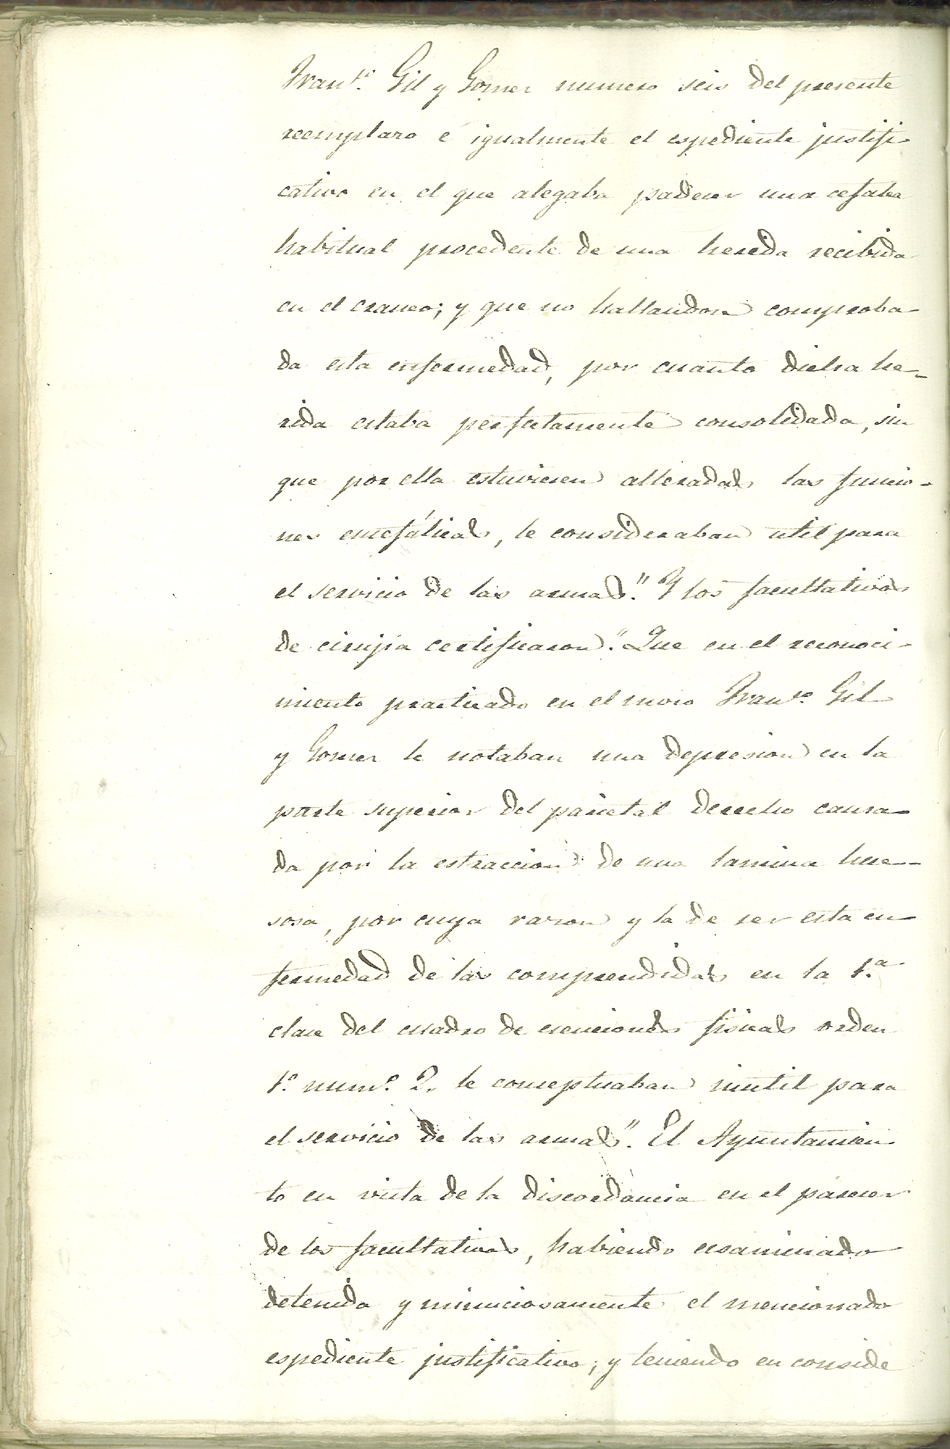 Fran.co Gil y Gomez numero seis del presente
reemplazo é igualmente el espediente justifi-
cativo en el que alegaba padecer una cefalea
habitual procedente de una hereda recibida
en el craneo; y que no hallandose comproba-
da esta enfermedad, por cuanto dicha he-
rida estaba perfectamente consolidada, sin
que por ella estuviesen alteradas las funcio-
nes encefálicas, le consideraban util para
el servicio de las armas." Y los facultativos
de cirujia certificaron: "Que en el reconoci-
miento practicado en el mozo Fran.co Gil
y Gomez le notaban una depresion en la
parte superior del parietal derecho causa-
da por la estraccion de una lamina hue-
sosa, por cuya razon y la de ser esta en-
fermedad de las comprendidas en la 1.a
clase del cuadro de esenciones fisicas orden
1.o num.o 2. le conceptuaban inutil para
el servicio de las armas". El Ayuntamien-
to en vista de la discordancia en el parecer
de los facultativos, habiendo esaminado
detenida y minuciosamente el mencionado
espediente justificativo; y teniendo en conside